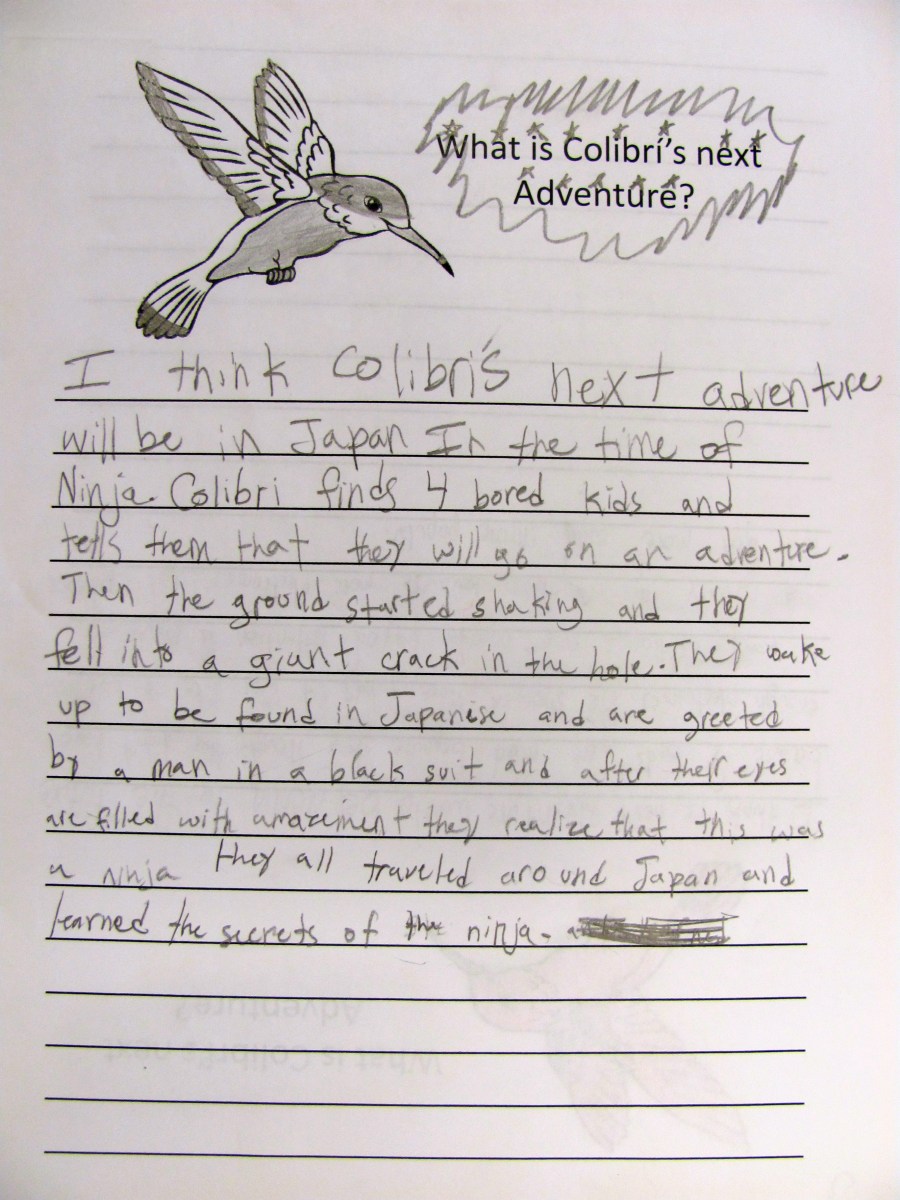 What is Colibrí's next
Adventure?
I think Colibri's next adventure
will be in Japan In the time of
Ninja. Colibri finds 4 bored kids and
tells them that they will go on an adventure.
Then the ground started shaking and they
fell into a giant crack in the hole. They wake
up to be found in Japanise and are greeted
by a man in a black suit and after their eyes
are filled with amazeiment they realize that this was
a ninja they all traveled around Japan and
learned the secrets of the ninja.